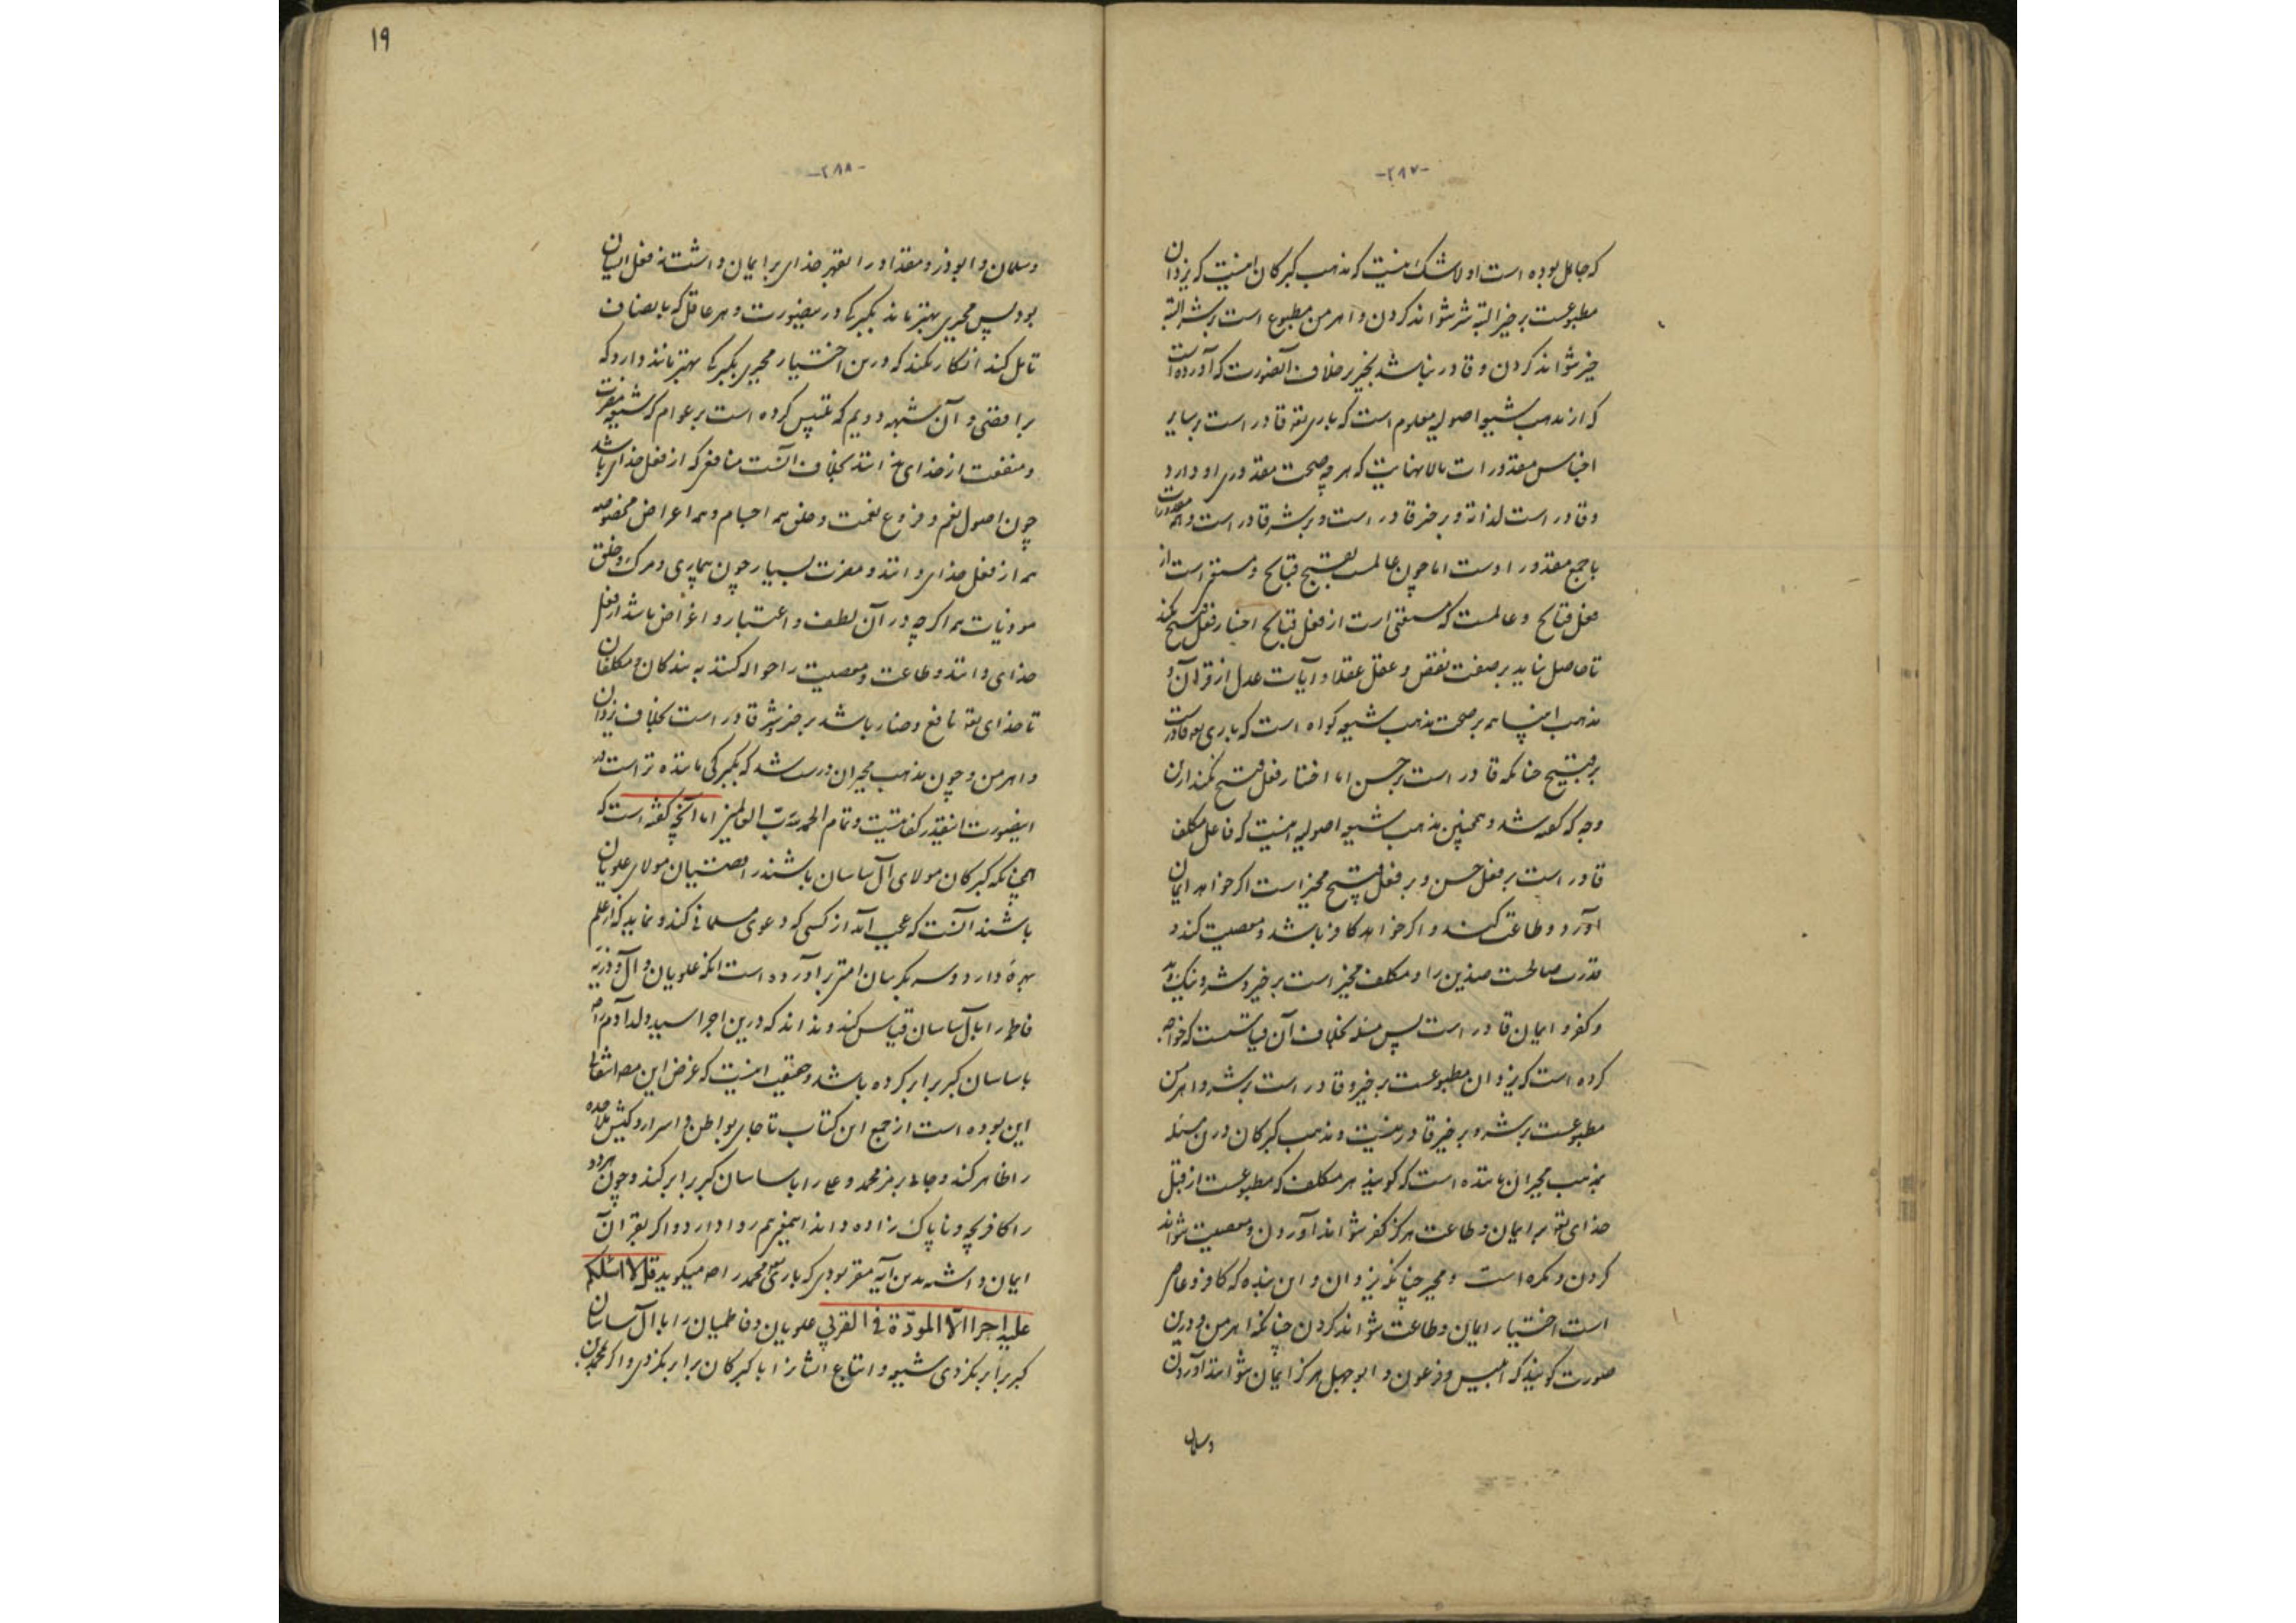 -۲۸۷-
که جاهل بوده است اولا شک نیست که مذهب کبرکان اینست که یزدان
مطبوعست بر خیر البته شر نتواند کردن و اهرمن مطبوع است بر شر البته
خیر نتواند کردن و قادر نباشد بخیر بر خلاف آنصورت که آورده است
که از مذهب شیعه اصولیه معلوم است که باری تعه قادر است بر سایر
اجناس مقدورات بالا نهایت که هر چه صحت مقدوری او دارد
و قادر است لذاته و بر خیر قادر است و بر شر قادر است و همه مقدورات
با جمع مقدور اوست اما چون عالمست بقبح قبایح و مستغنی است از
فعل قبایح و عالمست که مستغنی است از فعل قبایح اختیار فعل قبیح نکند
تا حاصل نیاید بر صفت نقص و عقل عقلا و آیات عدل از قرآن و
مذهب انبیا همه بر صحت مذهب شیعه کواه است که باری تعه قادرست
بر قبیح چنانکه قادر است بر حسن اما اختیار فعل قبیح نکند ازین
وجه که کفته شد و همچنین مذهب شیعه اصولیه اینست که فاعل مکلف
قادر است بر فعل حسن و بر فعل قبیح مخیر است اکر خواهد ایمان
آورد و طاعت کند و اکر خواهد کافر باشد و معصیت کند و
قدرت صالحست ضدین را و مکلف مخیر است بر خیر و شر و نیک و بد
و کفر و ایمان قادر است پس مسله بخلاف آن قیاسست که خواجه
کرده است که یزدان مطبوعست بر خیر و قادر است بر شر و اهرمن
مطبوعست بر شر و بر خیر قادر نیست و مذهب کبرکان درین مسئله
بمذهب مجبران ماننده است که کویند هر مکلف که مطبوعست از قبل
خدای تعه بر ایمان و طاعت هرکز کفر نتواند آوردن و معصیت نتواند
کردن و مکره است و مجبر چنانکه یزدان و این بنده که کافر و عاصی
است اختیار ایمان و طاعت نتواند کردن چنانکه اهرمن و درین
صورت کویند که ابلیس و فرعون و ابوجهل هرکز ایمان نتوانند آوردن
و سلمان
۱۹
-۲۸۸-
و سلمان و ابوذر و مقداد را بقهر خدای بر ایمان داشت نه فعل ایشان
بود پس مجبری بهتر ماند بکبرکی در بیصورت و هر عاقل که بانصاف
تامل کند انکار نکند که درین اختیار مجبری بکبرکی بهتر مانند دارد که
برافضی و آن شبهه دویم که تلبیس کرده است بر عوام که شیعه مضرت
و منفعت از خدای ندانند بخلاف آنست منافعی که از فعل خدای باشد
چون اصول نعم و فروع نعمت و خلق همه اجسام و همه اعراض مخصوصه
همه از فعل خدای دانند و مضرت بسیار چون بیماری و مرک و خلق
موذیات همه اکرچه در آن لطف و اعتبار و اغراض باشد از فعل
خدای دانند و طاعت و معصیت را حواله کنند به بندکان و مکلفان
تا خدای تعه نافع و ضار باشد بر خیر و شر قادر است بخلاف یزدان
و اهرمن و چون مذهب مجبران درست شد که بکبرکی ماننده تر است در
اینصورت اینقدر کفایتست و تمام الحمد لله رب العالمین اما آنچه کفته است که
همچنانکه کبرکان مولای آل ساسان باشند رافضیان مولای علویان
باشند آنست که عجب آید از کسی که دعوی مسلمانی کند و نماید که از علم
بهره دارد و سه بکر بیان امتر برآورده است آنکه علویان و آل و ذریه
فاطمه را با آل ساسان قیاس کند و نداند که درین اجرا سید ولد آدم را ص
با ساسان کبر برابر کرده باشد و حقیقت اینست که غرض این مصه انتقالی
این بوده است از جمع این کتاب تا جای بواطن و اسرار و کیش ملاحده
را ظاهر کند و جای بر مز محمد و علی را با ساسان کبر برابر کند و چون هر دو
را کافر بچه و ناپاک زاده داند اینهم روا دارد و اکر بقرآن
ایمان داشته بدین آیه مقر بودی که باری تعه محمد را صه میکوید قل لا اسئلکم
علیه اجرا الا المودة فی القربی علویان و فاطمیان را با آل ساسان
کبر برابر نکردی شیعه و اتباع ایشانرا با کبرکان برابر نکردی و اکر محمد بن